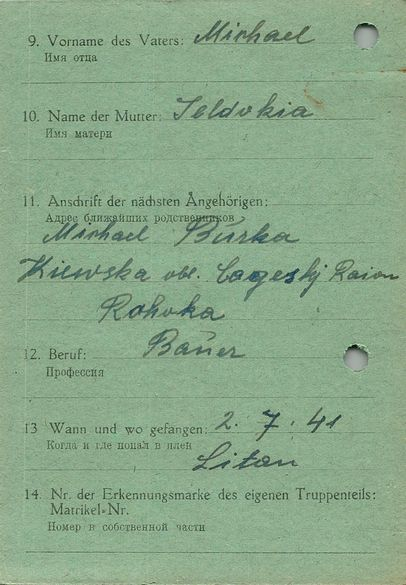 9. Vorname des Vaters: Michael
Имя отца
10. Name der Mutter: Jeldokia
Имя матери
11. Anschrift der nächsten Angehörigen:
Адрес ближайших родственников
Michael Burka
Kiewska obl. Raion
Rohoka
12. Beruf: Bauer
Профессия
13 Wann und wo gefangen: 2. 7. 41
Когда и где попал в плен
Litau
14. Nr. der Erkennungsmarke des eigenen Truppenteils:
Matrikel-Nr.
Номер в собственной части